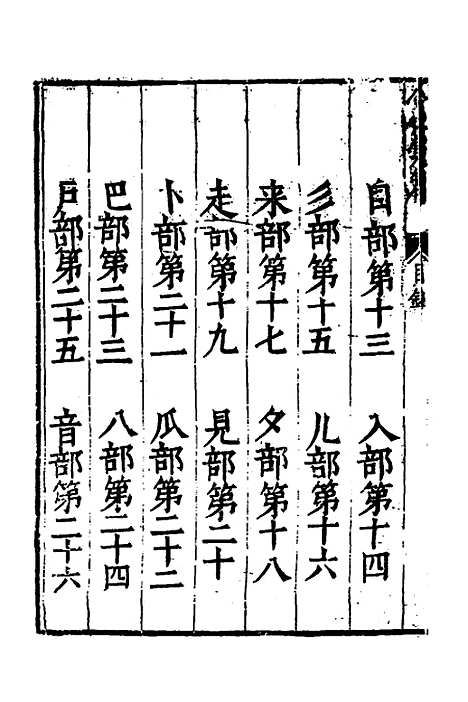 目錄
自部第十三
入部第十四
彡部第十五
儿部第十六
来部第十七
夕部第十八
走部第十九
見部第二十
卜部第二十一
瓜部第二十二
巴部第二十三
八部第二十四
部第二十五
音部第二十六